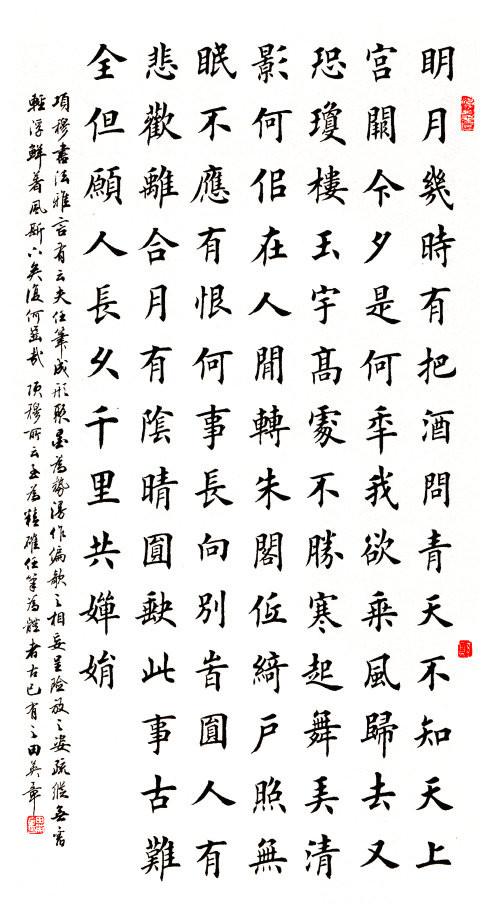 明月幾時有把酒問青天不知天上
宮闕今夕是何秊我欲乘風歸去又
恐瓊樓玉宇高處不勝寒起舞弄清
影何佀在人間轉朱閣低綺戶照無
眠不應有恨何事長向別旹圓人有
悲歡離合月有陰晴圓缺此事古難
全但願人長久千里共嬋娟
項穆書法雅言有云夫任筆成形聚墨為勢漫作偏欹之相妄呈險放之姿疏縱無審
輕浮鮮著風斯下矣復何齒哉 項穆所云至為精確任筆為體者古已有之田英章